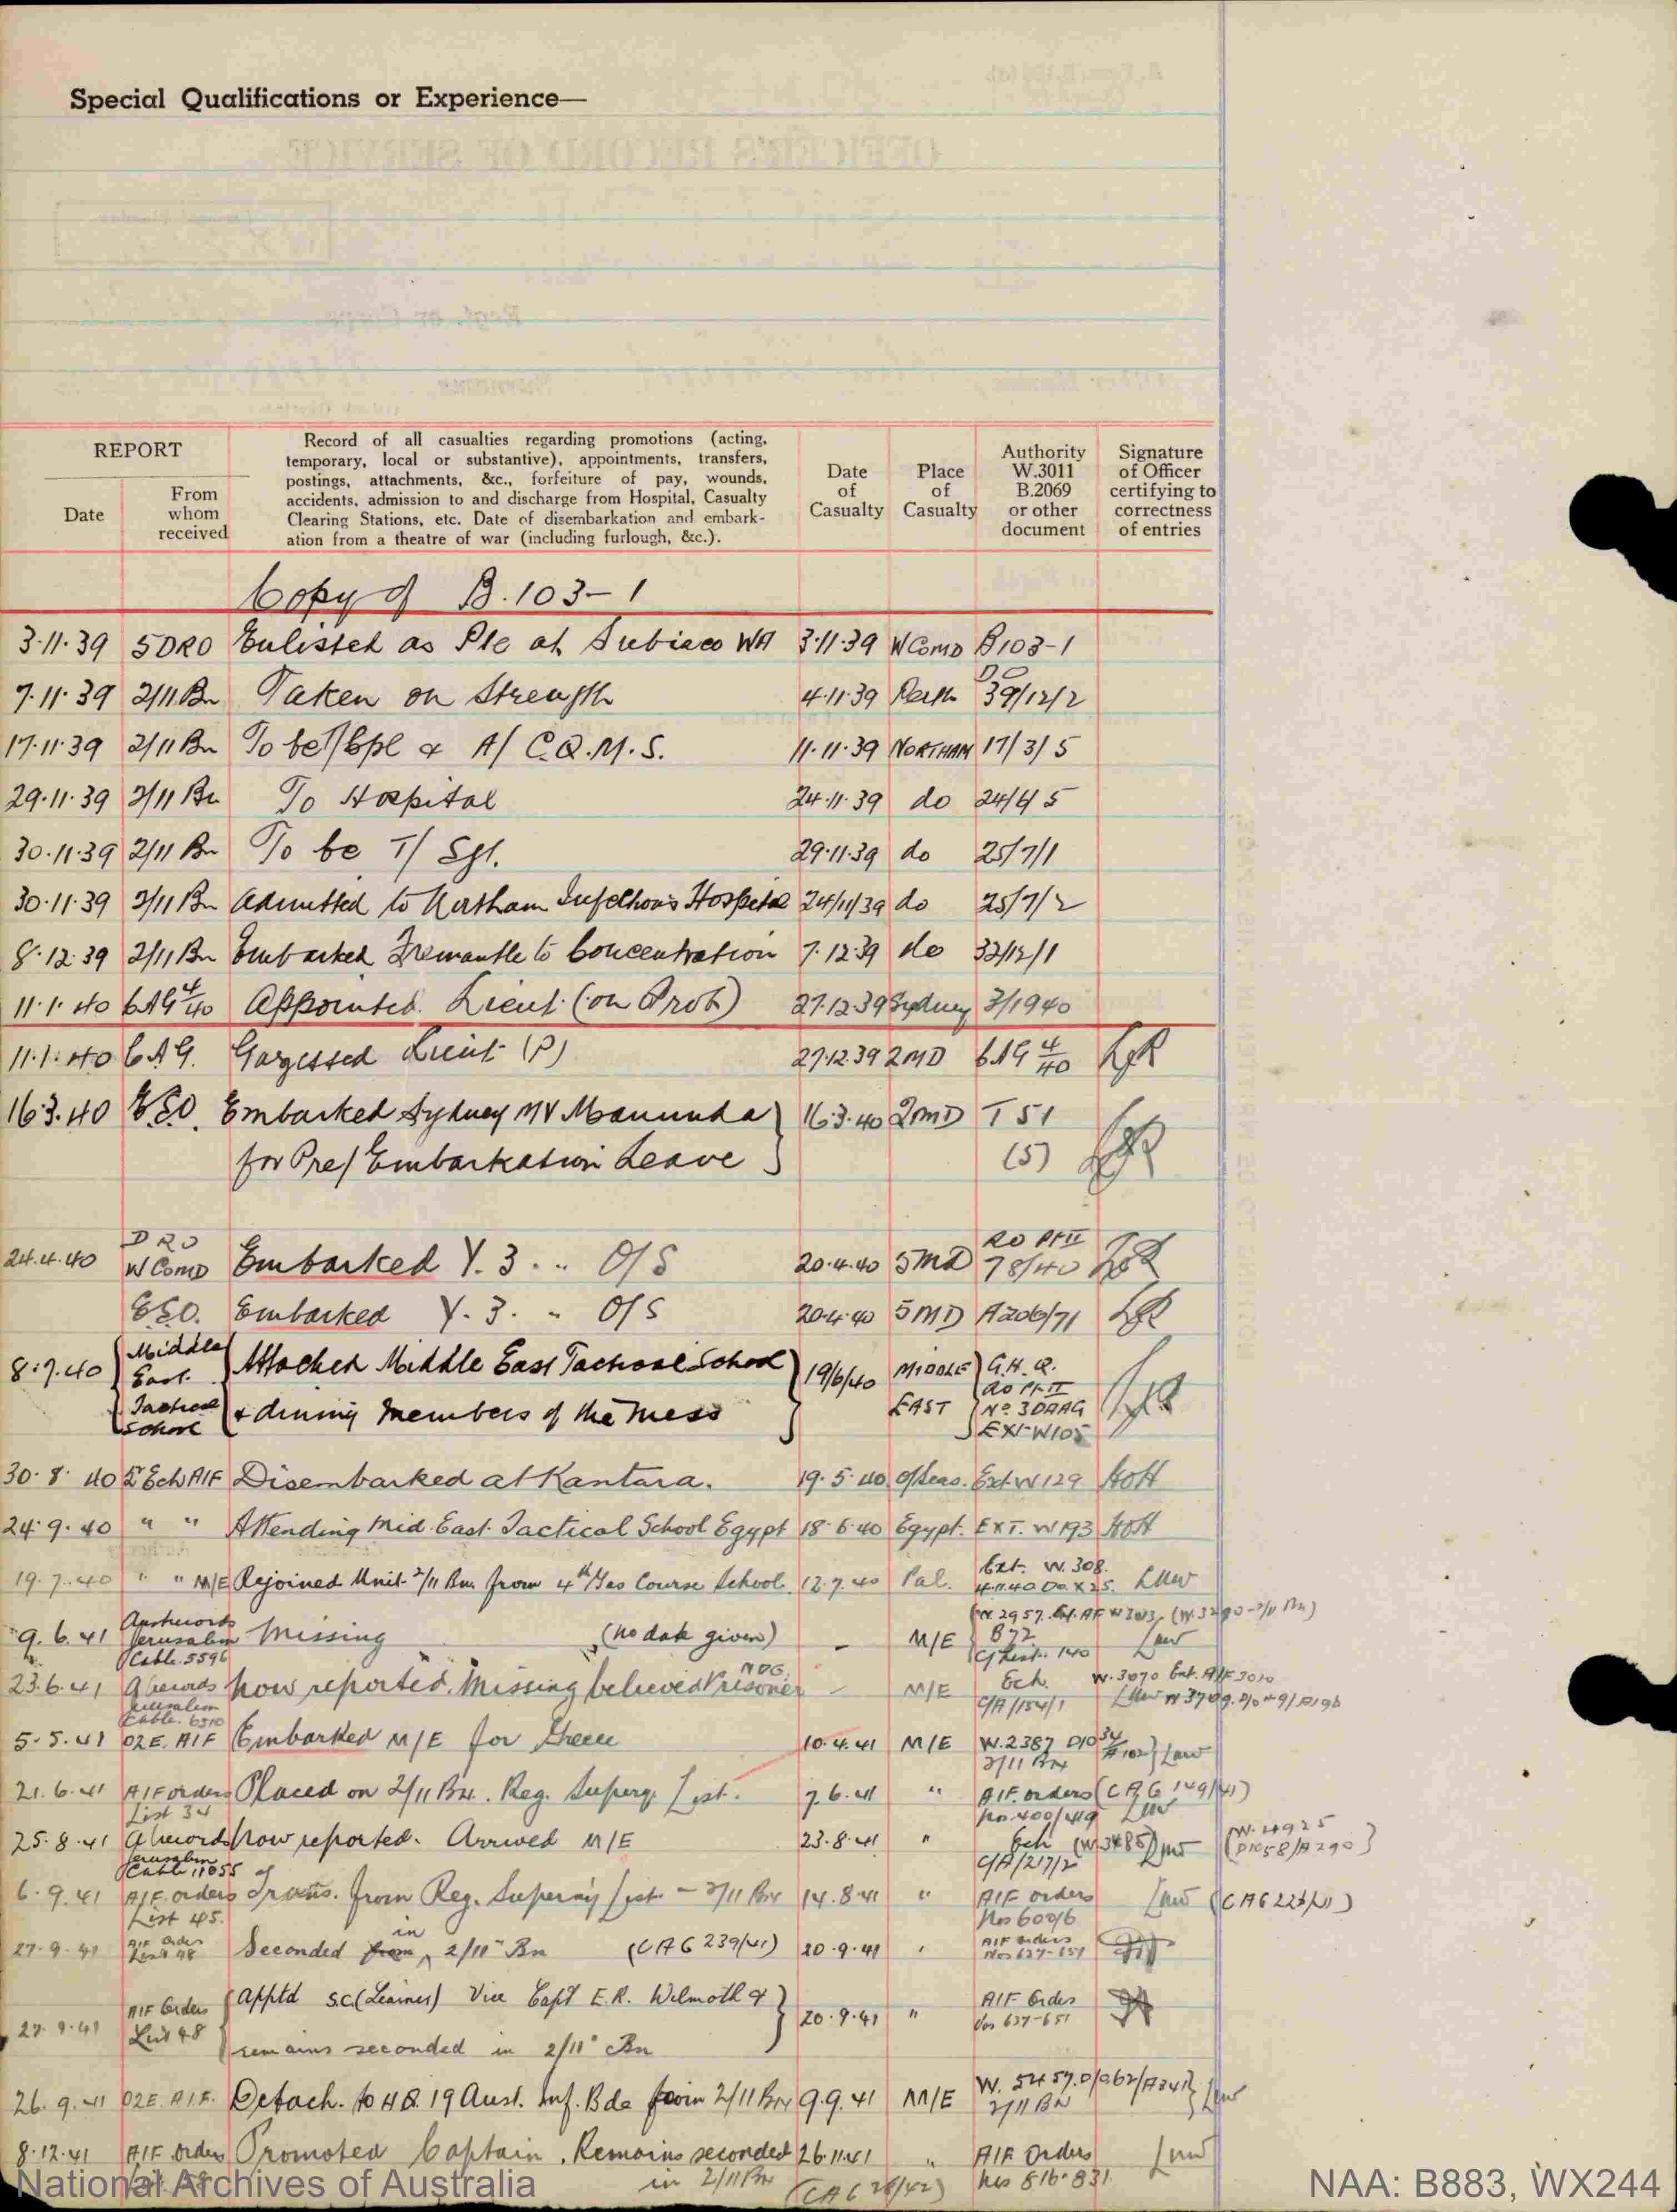 Special Qualifications or Experience—
REPORT
Date
From
whom
received
Record of all casualties regarding promotions (acting,
temporary, local or substantive), appointments, transfers,
postings, attachments, &c., forfeiture of pay, wounds,
accidents, admission to and discharge from Hospital, Casualty
Clearing Stations, etc. Date of disembarkation and embark-
ation from a theatre of war (including furlough, &c.).
Date
of
Casualty
Place
of
Casualty
Authority
W.3011
B.2069
or other
document
Signature
of Officer
certifying to
correctness
of entries
Copy of B.103-1
3.11.39 5DRO Enlisted as Pte at Subiaco WA 3.11.39 W Comd B103-1
7.11.39 2/11 Bn Taken on Strength 4.11.39 Perth 39/12/2
17.11.39 2/11 Bn To be Cpl & A/ C.Q.M.S. 11.11.39 NORTHAM 17/3/5
29.11.39 2/11 Bn To Hospital 24.11.39 do 24/45
30.11.39 2/11 Bn To be T/ Sgt. 29.11.39 do 25/7/1
30.11.39 2/11 Bn Admitted to Northam Infectious Hospital 24/11/39 do 25/7/2
8.12.39 2/11 Bn Embarked Fremantle to Concentration 7.12.39 do 32/12/1
11.1.40 CAG 4/40 Appointed Lieut (on Prob) 27.12.39 Sydney 3/1940
11.1.40 CAG. Gazetted Lieut (P) 27.12.39 2MD CAG 4/40
16.3.40 ESO. Embarked Sydney MV Manunda 16.3.40 2MD T 51
for Pre/ Embarkation Leave (5)
24.4.40 DRO W Comd Embarked Y.3 .. O/S 20.4.40 5MD RO Pt II 78/40
ESO. Embarked Y.3. " O/S 20.4.40 5MD A206/71
8.7.40 Middle East Tactical School Attached Middle East Tactical School 19/6/40 MIDDLE EAST G.H.Q.
& dining members of the Mess RO Pt II No 30AAG EXT W105
30.8.40 2 Ech AIF Disembarked at Kantara. 19.5.40 O/Seas. Ext W129
24.9.40 " " Attending Mid. East. Tactical School Egypt 18.6.40 Egypt. EXT. W193
19.7.40 " " M/E Rejoined Unit 2/11 Bn. from 4th Gas Course School 12.7.40 Pal. Ext. W.308.
9.6.41 Austrecords Jerusalem Cable 5596 Missing (no date given) - M/E 872
23.6.41 Arecords Jerusalem Cable. Now reported. Missing believed Prisoner - M/E Ech. W.3070 Ext. AIF 3010
C/A/154/1
5.5.41 02E. AIF Embarked M/E for Greece 10.4.41 M/E W.2387 2/11 Bn
21.6.41 AIF orders List 34 Placed on 2/11 Bn. Reg. Superny List. 7.6.41 " AIF. orders (CAG 149/41)
25.8.41 Arecords Jerusalem Cable 11855 Now reported. Arrived M/E 23.8.41 " Ech (W3485)
C/A/217/2
6.9.41 AIF. orders List 45. Trans. from Reg. Superny List - 2/11 Bn 14.8.41 " AIF orders Nos 600/6
27.9.41 AIF Orders List 48 Seconded in 2/11 Bn (CAG 239/41) 20.9.41 " AIF orders Nos 637-651
27.9.41 AIF Orders List 48 Apptd S.C. (Learner) Vice Capt E.R. Wilmoth & 20.9.41 " AIF Orders Nos 637-651
remains seconded in 2/11 Bn
26.9.41 02E. AIF. Detach. to HQ. 19 Aust. Inf. Bde from 2/11 Bn 9.9.41 M/E 2/11 BN
8.12.41 AIF Orders Promoted Captain. Remains seconded 26.11.41 " AIF Orders
in 2/11 Bn (CAG 28/42) Nos 816-831
National Archives of Australia
NAA: B883, WX244